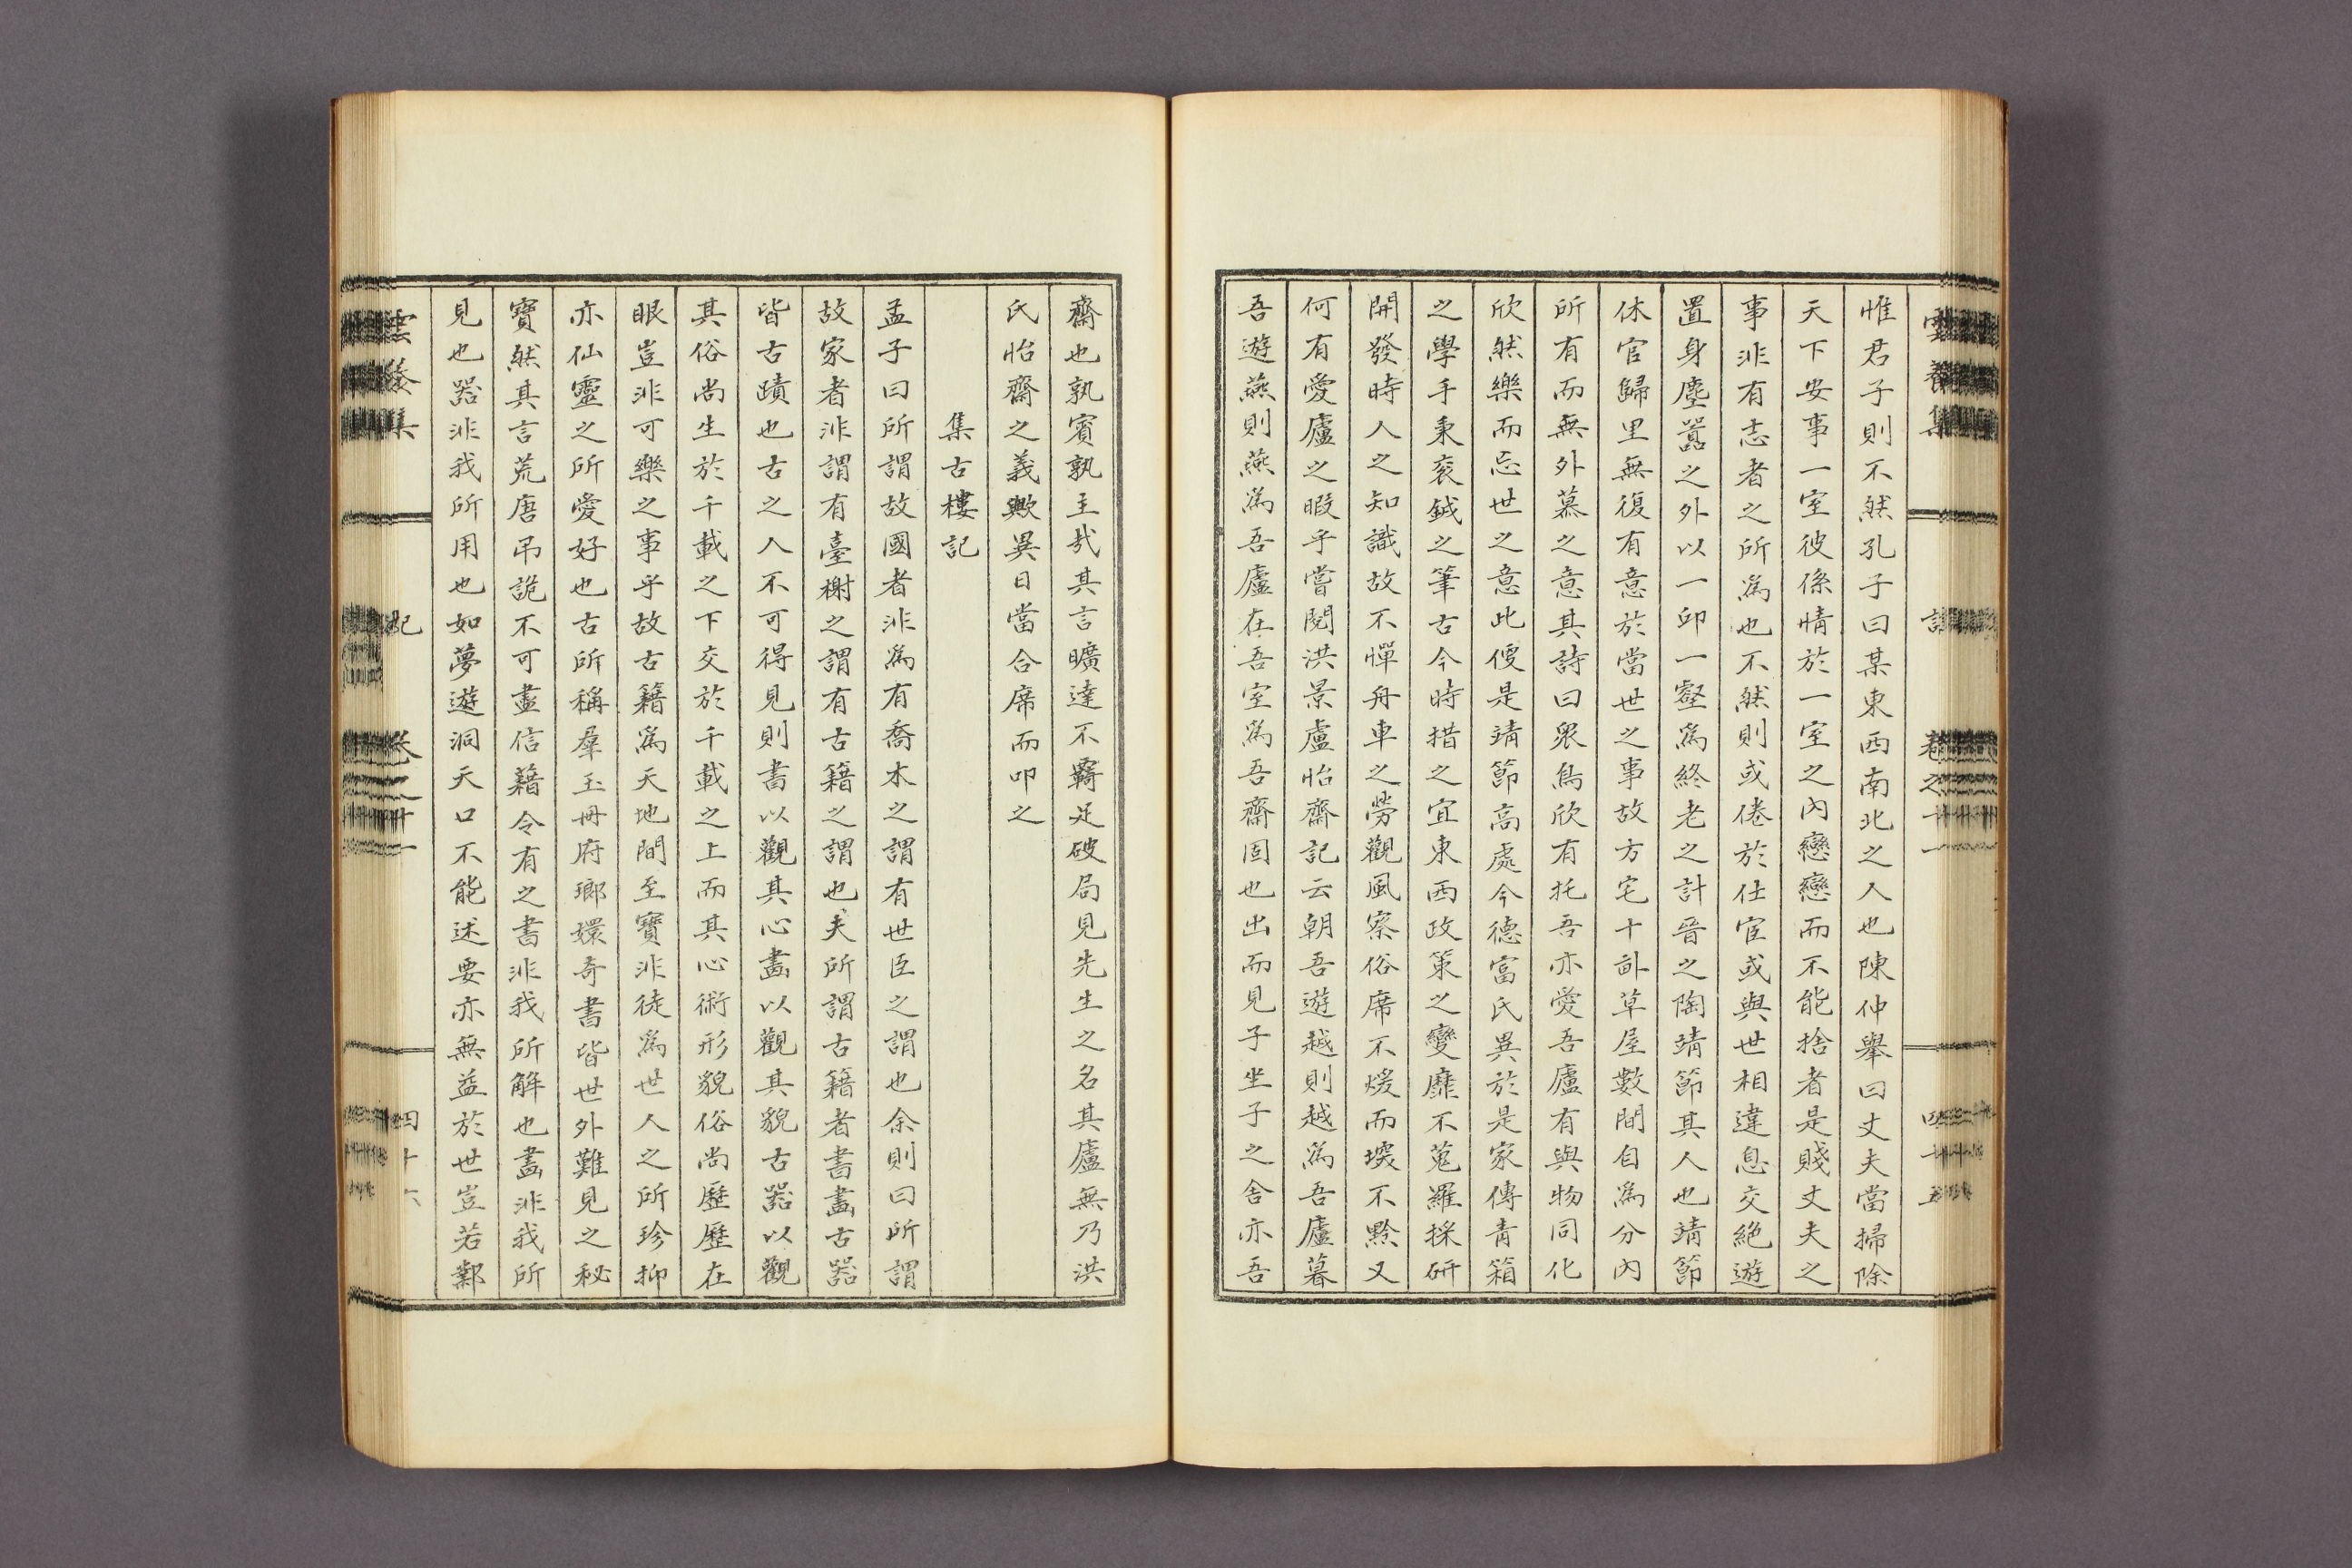 雲養集 記 卷之十一 四十五
惟君子則不然孔子曰某東西南北之人也陳仲舉曰丈夫當掃除
天下安事一室彼係情於一室之內戀戀而不能捨者是賤丈夫之
事非有志者之所爲也不然則或倦於仕宦或與世相違息交絕遊
置身塵囂之外以一邱一壑爲終老之計晉之陶靖節其人也靖節
休官歸里無復有意於當世之事故方宅十畝草屋數間自爲分內
所有而無外慕之意其詩曰衆鳥欣有托吾亦愛吾廬有與物同化
欣然樂而忘世之意此便是靖節高處今德富氏異於是家傳青箱
之學手秉衮鉞之筆古今時措之宜東西政策之變靡不蒐羅採研
開發時人之知識故不憚舟車之勞觀風察俗席不煖而堗不黔又
何有愛廬之暇乎嘗閱洪景盧怡齋記云朝吾遊越則越爲吾廬暮
吾遊燕則燕爲吾廬在吾室爲吾齋固也出而見子坐子之舍亦吾
齋也孰賓孰主哉其言曠達不羈足破局見先生之名其廬無乃洪
氏怡齋之義歟異日當合席而叩之
集古樓記
孟子曰所謂故國者非爲有喬木之謂有世臣之謂也余則曰所謂
故家者非謂有臺榭之謂有古籍之謂也夫所謂古籍者書畵古器
皆古蹟也古之人不可得見則書以觀其心畵以觀其貌古器以觀
其俗尚生於千載之下交於千載之上而其心術形貌俗尚歷歷在
眼豈非可樂之事乎故古籍爲天地間至寶非徒爲世人之所珍抑
亦仙靈之所愛好也古所稱羣玉冊府瑯嬛奇書皆世外難見之秘
寶然其言荒唐吊詭不可盡信藉令有之書非我所解也畵非我所
見也器非我所用也如夢遊洞天口不能述要亦無益於世豈若鄴
雲養集 記 卷之十一 四十六